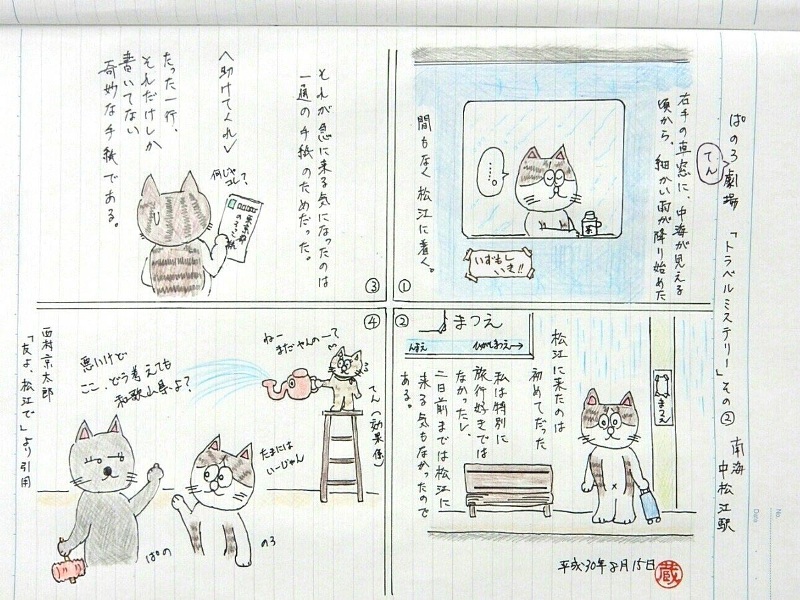 ぱのろ劇場 「トラベルミステリー」その② 南海 中松江駅
てん
①
右手の車窓に、中海が見える
頃から、細かい雨が降り始めた
間もなく松江に着く。
……。
茶
いずもし
いき!!
②
まつえ
ひがしまつえ→
まつえ
松江に来たのは
初めてだった
私は特別に
旅行好きでは
なかったし、
二日前までは松江に
来る気もなかったので
ある。
平成30年8月15日
蔵
③
それが急に来る気になったのは
一通の手紙のためだった。
〈助けてくれ〉
たった一行、
それだけしか
書いてない
奇妙な手紙である。
何じゃ
コレ?
東京都
④
ねー
まだやんのーって
てん(効果係)
悪いけど
ここ、どう考えても
和歌山県よ?
たまには
いーじゃん
ぱの
のろ
西村京太郎
「友よ、松江で」より引用
No.
Date